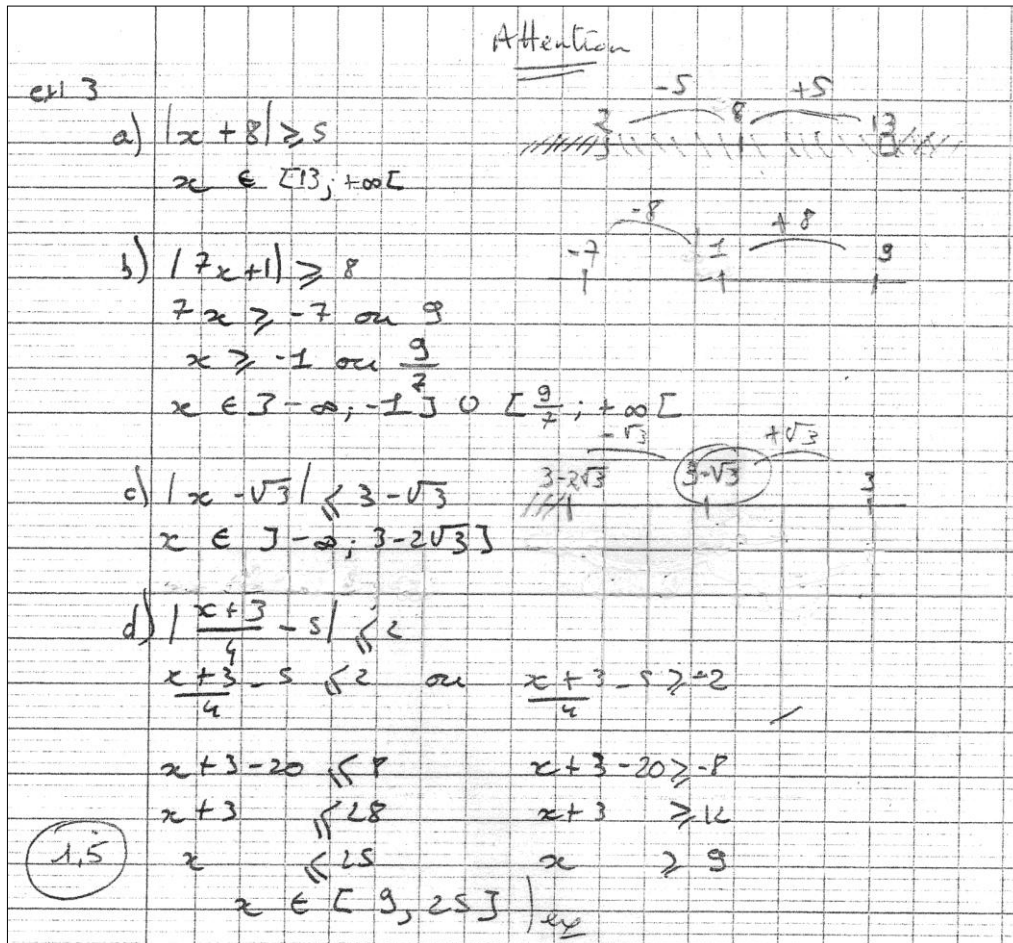 Attention
ex 3
a) |x + 8| ≥ 5
-5 +5
3 8 13
x ∈ [13; +∞[
-8 +8
-7 1 9
-1
b) |7x+1| ≥ 8
7x ≥ -7 ou 9
x ≥ -1 ou 9/7
x ∈ ]-∞; -1] ∪ [9/7; +∞[
-√3 +√3
3-2√3 3-√3 3
c) |x - √3| ≤ 3-√3
x ∈ ]-∞; 3-2√3]
d) |(x+3)/4 - 5| ≤ 2
(x+3)/4 - 5 ≤ 2 ou (x+3)/4 - 5 ≥ -2
x+3-20 ≤ 8 x+3-20 ≥ -8
x+3 ≤ 28 x+3 ≥ 12
1,5 x ≤ 25 x ≥ 9
x ∈ [9, 25]